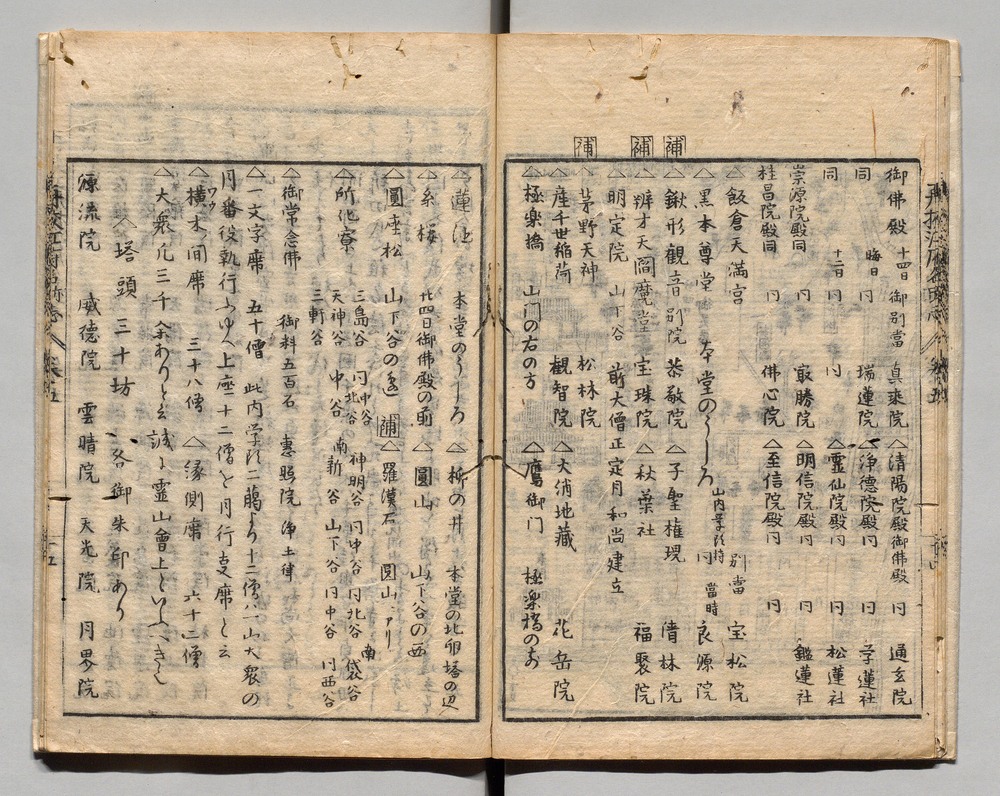 御佛殿 十四日 御別當 真乘院 △清陽院殿御佛殿 同 通玄院
同 晦日 同 瑞蓮院 △浄德院殿同 同 学蓮社
同 十二日 同 △靈仙院殿同 同 松蓮社
崇源院殿同 同 最勝院 △明信院殿同 同 鑑蓮社
桂昌院殿同 同 佛心院 △至信院殿同
△飯倉天満宮 別當 宝松院
△黒本尊堂 本堂のうしろ 山内学頭持 同 當時 良源院
補 △鍬形觀音別院 恭敬院 △子聖権現 清林院
補 △辨才天 閻魔堂 宝珠院 △秋葉社 福聚院
明定院 山下谷 前大僧正定月和尚建立
補 △茅野天神 松林院
△産千世稲荷 觀智院 △大消地藏 花岳院
△極楽橋 山门の右の方 △鷹御门 極楽橋のお
△蓮池 本堂のうしろ △柳の井 本堂の北卵塔の辺
△糸桜 廿四日御佛殿の前 △圓山 山下谷の西
△圓座松 山下谷の 補 △羅漢石 圓山ニアリ
△所化寮 三島谷 同中谷 同北谷 神明谷 同中谷 同北谷 南袋谷
天神谷 中谷 南新谷 山下谷 同中谷 同西谷
三軒谷
△御常念佛 御料五百石 恵照院 浄土律
△一文字席 五十僧 此内学頭二﨟より十二僧ハ一山大衆の
月番役執行ふゆへ上座十二僧を月行支席と云
△横木ノ間席 三十八僧 △縁側席 六十二僧
△大衆凡三千余ありと云誠に靈山會上といふへきか
△塔頭 三十坊 各御朱印あり
源流院 威德院 雲晴院 天光院 月界院